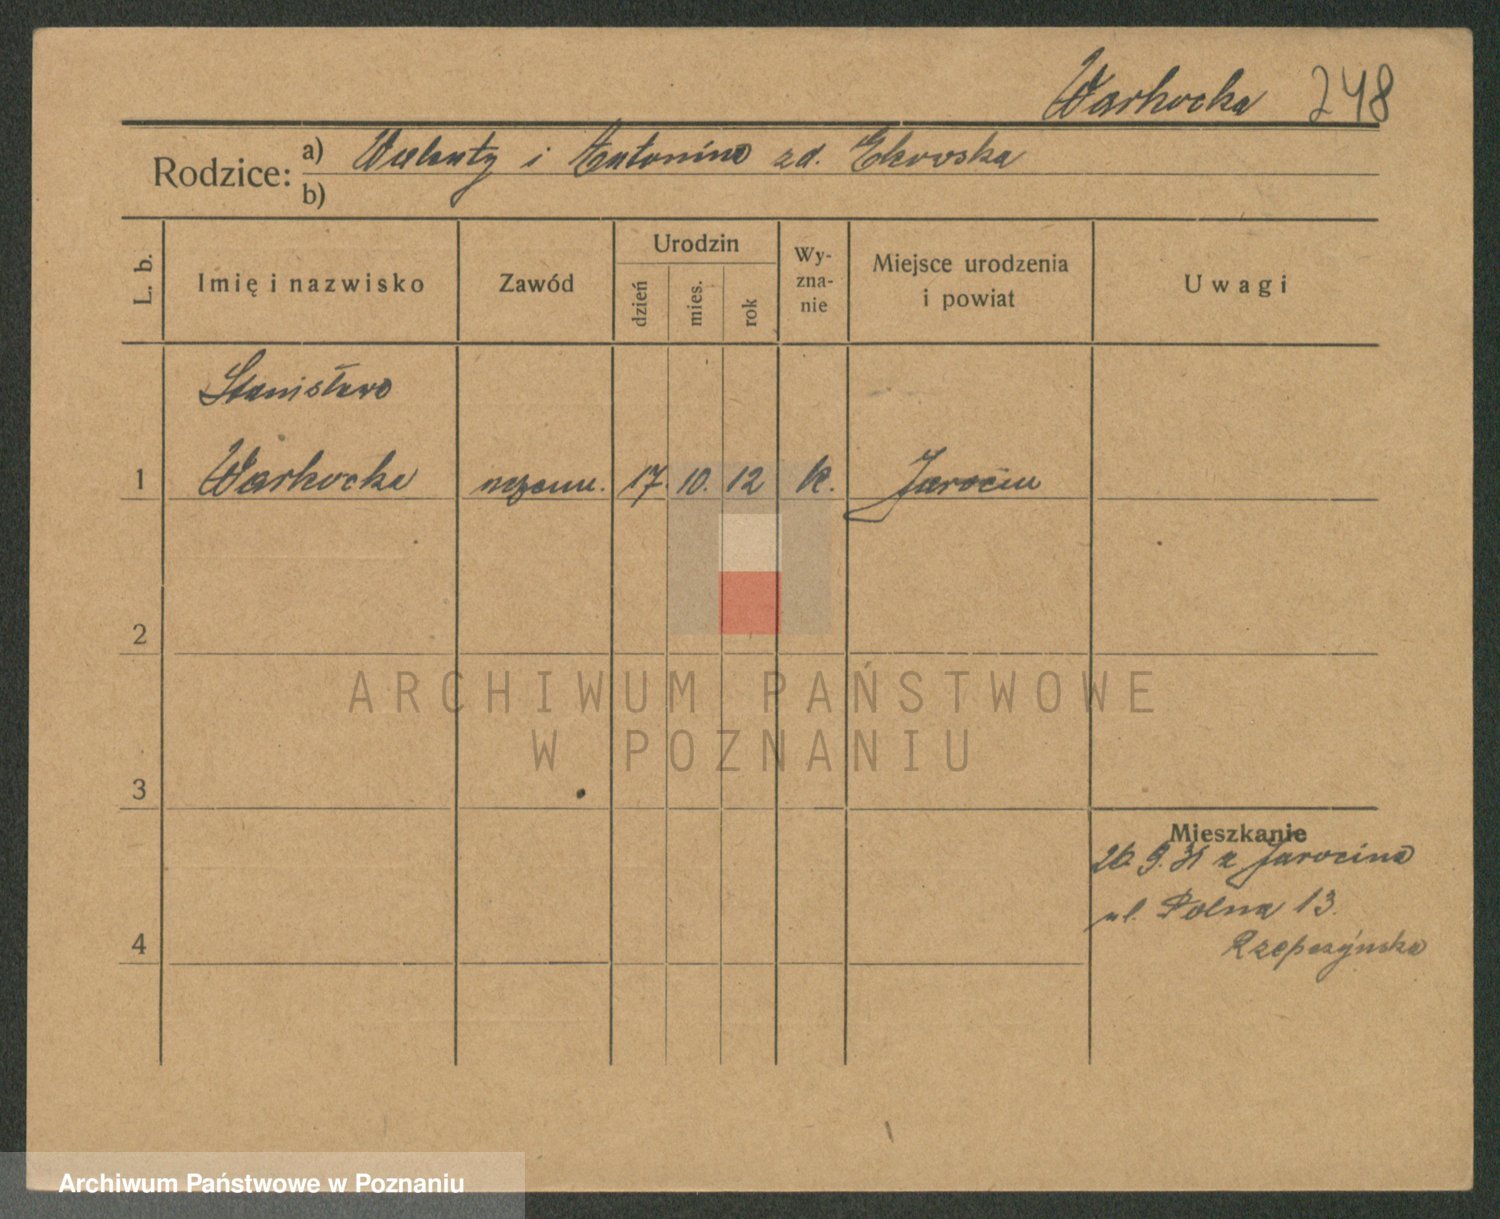 Warkocka 248
Rodzice: a) Walenty i Antonina zd.
b)
L. b. Imię i nazwisko Zawód Urodzin dzień mies. rok Wy-zna-nie Miejsce urodzenia i powiat Uwagi
Stanisława
1 Warkocka 17. 10. 12 k. Jarocin
2
3
4
Mieszkanie
26. 9. 31 z Jarocina
ul. Polna 13.
Rzepczyńska
ARCHIWUM PAŃSTWOWE
W POZNANIU
Archiwum Państwowe w Poznaniu